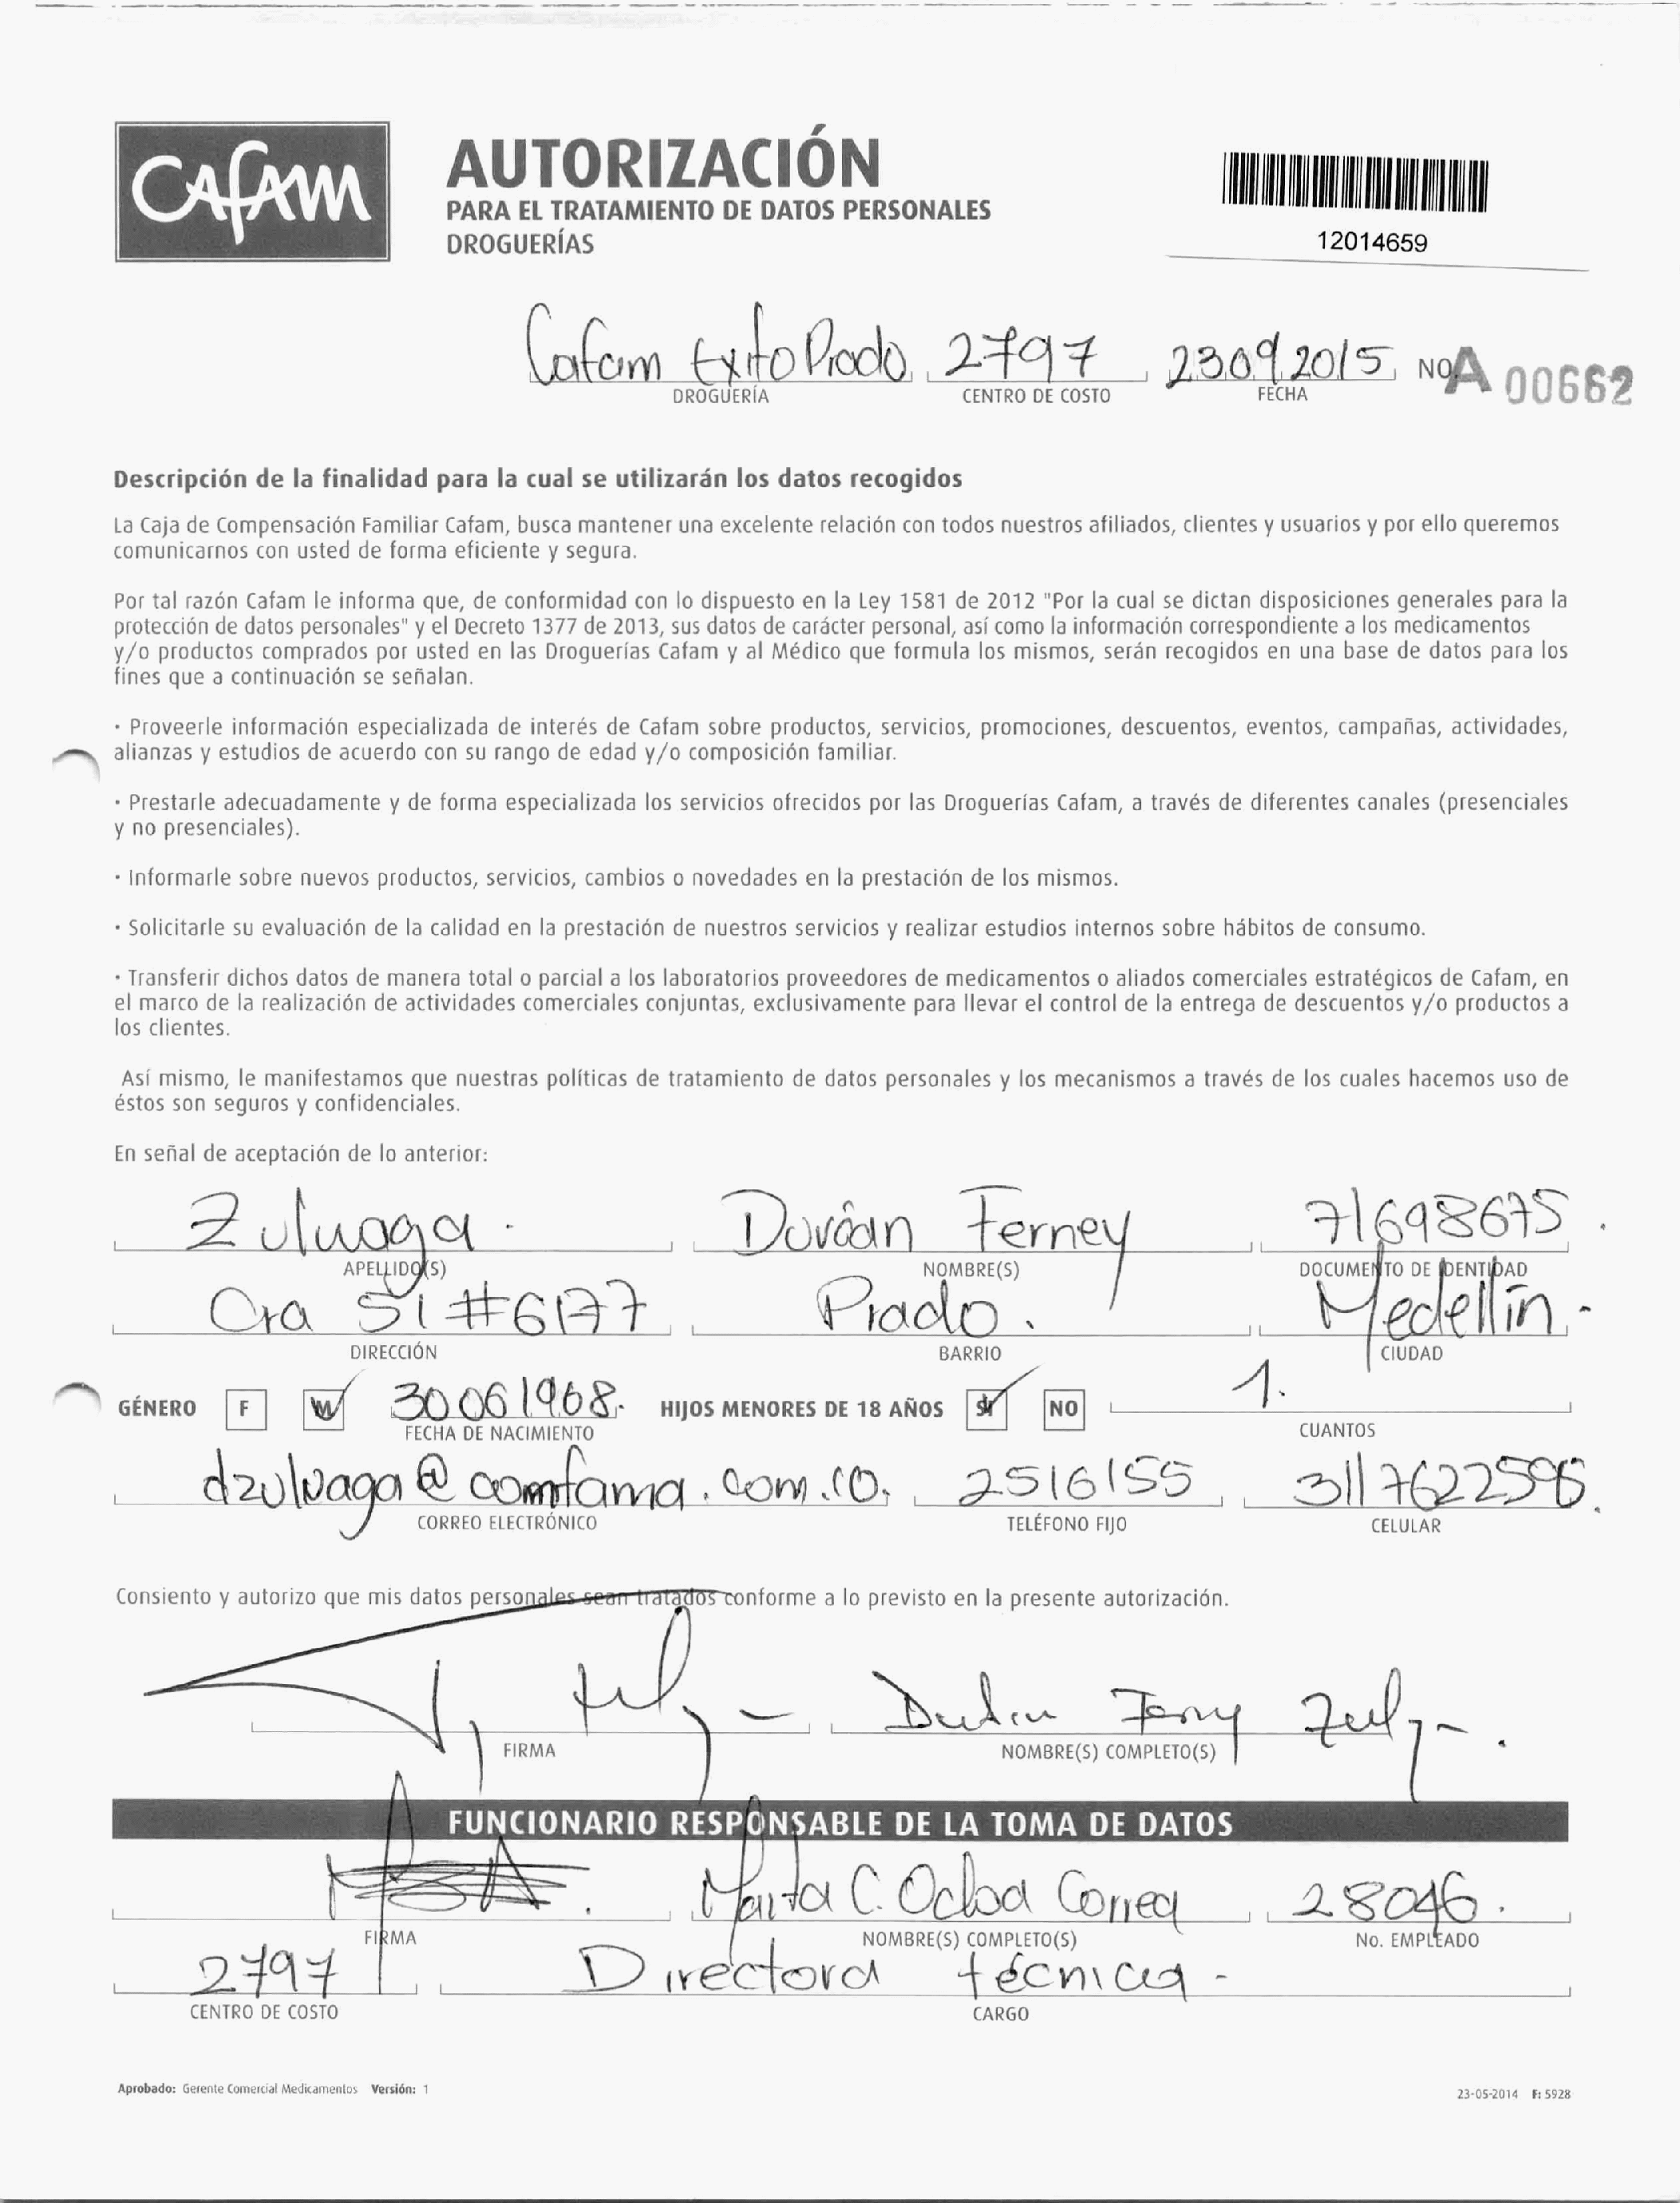 CAFAM
AUTORIZACIÓN
PARA EL TRATAMIENTO DE DATOS PERSONALES
DROGUERÍAS
12014659
Cafam Exito Prado 2797 23092015 NO. A 00662
DROGUERÍA CENTRO DE COSTO FECHA
Descripción de la finalidad para la cual se utilizarán los datos recogidos
La Caja de Compensación Familiar Cafam, busca mantener una excelente relación con todos nuestros afiliados, clientes y usuarios y por ello queremos
comunicarnos con usted de forma eficiente y segura.
Por tal razón Cafam le informa que, de conformidad con lo dispuesto en la Ley 1581 de 2012 "Por la cual se dictan disposiciones generales para la
protección de datos personales" y el Decreto 1377 de 2013, sus datos de carácter personal, así como la información correspondiente a los medicamentos
y/o productos comprados por usted en las Droguerías Cafam y al Médico que formula los mismos, serán recogidos en una base de datos para los
fines que a continuación se señalan.
· Proveerle información especializada de interés de Cafam sobre productos, servicios, promociones, descuentos, eventos, campañas, actividades,
alianzas y estudios de acuerdo con su rango de edad y/o composición familiar.
· Prestarle adecuadamente y de forma especializada los servicios ofrecidos por las Droguerías Cafam, a través de diferentes canales (presenciales
y no presenciales).
· Informarle sobre nuevos productos, servicios, cambios o novedades en la prestación de los mismos.
· Solicitarle su evaluación de la calidad en la prestación de nuestros servicios y realizar estudios internos sobre hábitos de consumo.
· Transferir dichos datos de manera total o parcial a los laboratorios proveedores de medicamentos o aliados comerciales estratégicos de Cafam, en
el marco de la realización de actividades comerciales conjuntas, exclusivamente para llevar el control de la entrega de descuentos y/o productos a
los clientes.
Así mismo, le manifestamos que nuestras políticas de tratamiento de datos personales y los mecanismos a través de los cuales hacemos uso de
éstos son seguros y confidenciales.
En señal de aceptación de lo anterior:
Zuluaga. Ferney 71698675.
APELLIDO(S) NOMBRE(S) DOCUMENTO DE IDENTIDAD
Cra 51 #6177 Prado. Medellín.
DIRECCIÓN BARRIO CIUDAD
GÉNERO F M 30061968. HIJOS MENORES DE 18 AÑOS SI NO 1.
FECHA DE NACIMIENTO CUANTOS
dzuluaga@comfama.com.co. 2516155
CORREO ELECTRÓNICO TELÉFONO FIJO CELULAR
Consiento y autorizo que mis datos personales sean tratados conforme a lo previsto en la presente autorización.
FIRMA NOMBRE(S) COMPLETO(S)
FUNCIONARIO RESPONSABLE DE LA TOMA DE DATOS
Marta C. Ochoa Correa 28046.
FIRMA NOMBRE(S) COMPLETO(S) No. EMPLEADO
2797 Directora técnica -
CENTRO DE COSTO CARGO
Aprobado: Gerente Comercial Medicamentos Versión: 1 23-05-2014 F: 5928